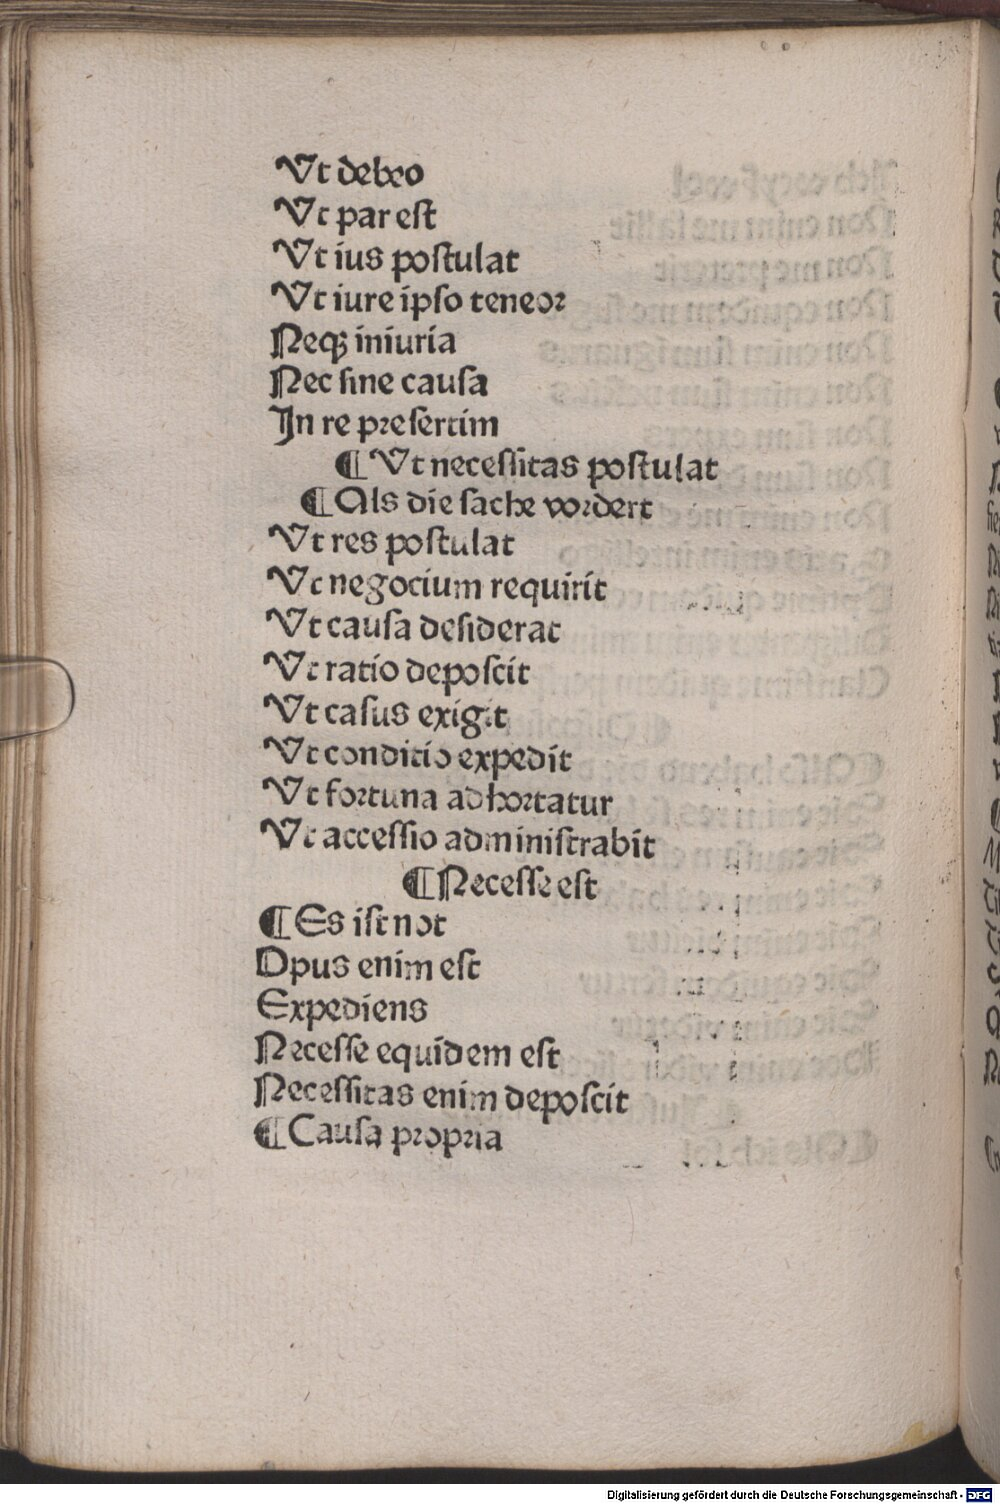 Vt debeo
Vt par est
Vt ius postulat
Vt iure ipso teneor
Neqʒ iniuria
Nec sine causa
In re presertim
¶ Vt necessitas postulat
¶ Als die sache vordert
Vt res postulat
Vt negocium requirit
Vt causa desiderat
Vt ratio deposcit
Vt casus exigit
Vt conditio expedit
Vt fortuna adhortatur
Vt accessio administrabit
¶ Necesse est
¶ Es ist not
Opus enim est
Expediens
Necesse equidem est
Necessitas enim deposcit
¶ Causa propria
Digitalisierung gefördert durch die Deutsche Forschungsgemeinschaft - DFG